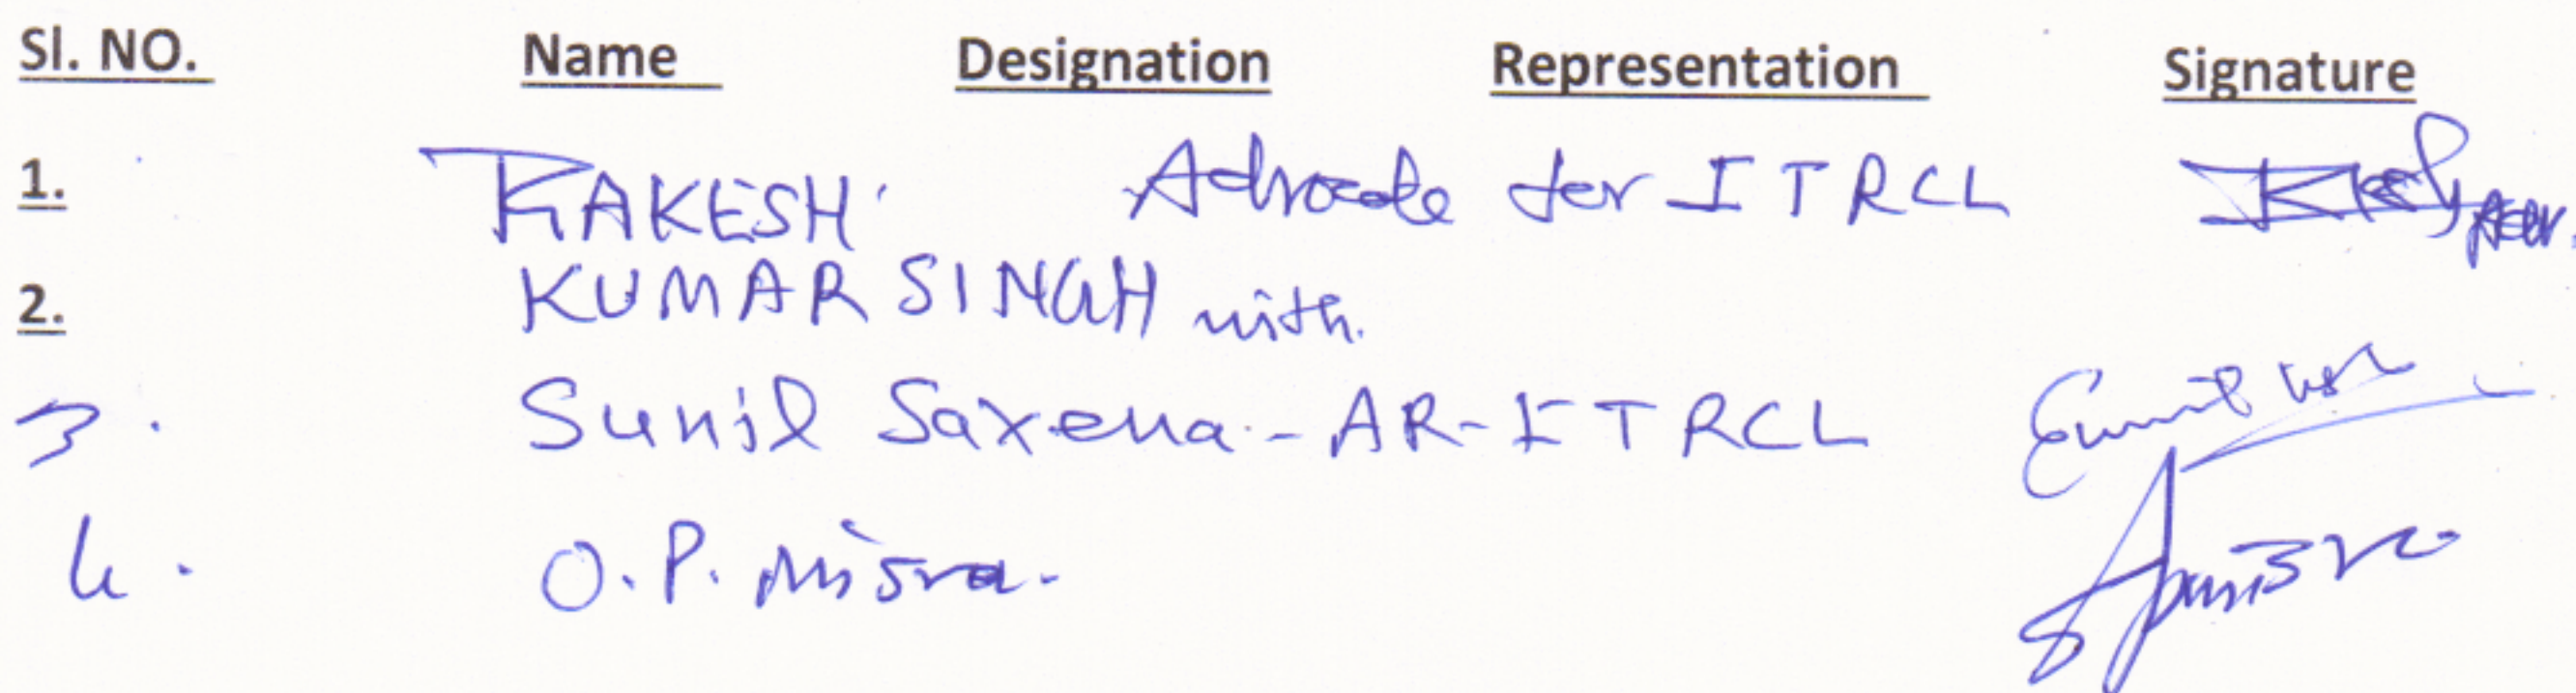 Sl. NO. Name Designation Representation Signature
1. RAKESH Advocate for ITRCL
2. KUMAR SINGH with.
3. Sunil Saxena - AR - ITRCL
4. O.P. Misra.